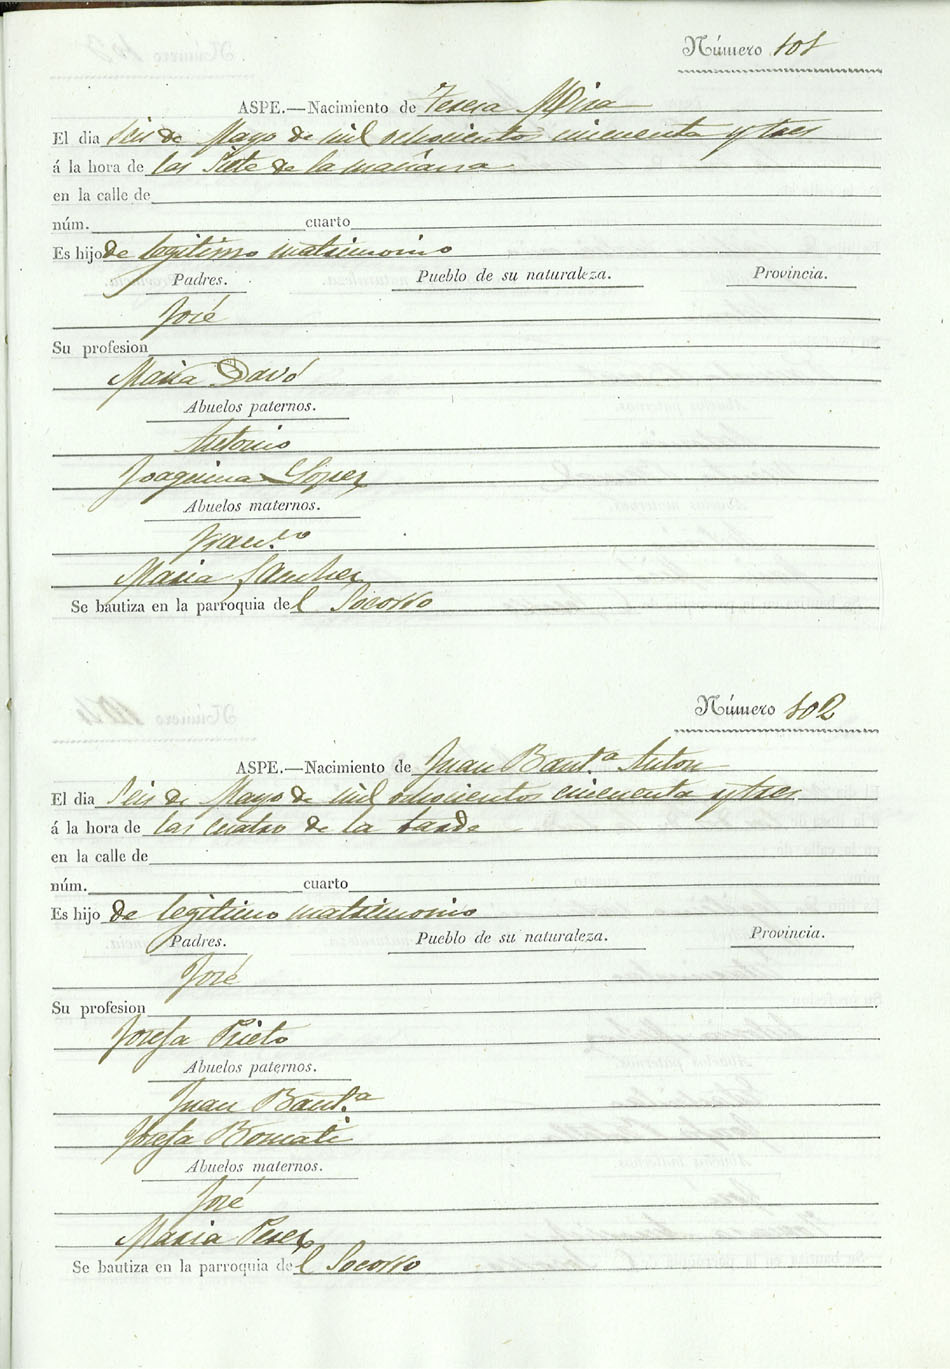 Número 101
ASPE.—Nacimiento de Teresa Mira
El dia Seis de Mayo de mil ochocientos cincuenta y tres
á la hora de las Siete de la mañana
en la calle de
núm. cuarto
Es hijo de legitimo matrimonio
Padres. Pueblo de su naturaleza. Provincia.
José
Su profesion
Maria Davó
Abuelos paternos.
Antonio
Joaquina López
Abuelos maternos.
Fran.co
Maria Sanchez
Se bautiza en la parroquia del Socorro
Número 102
ASPE.—Nacimiento de Juan Baut.a Anton
El dia Seis de Mayo de mil ochocientos cincuenta y tres
á la hora de las cuatro de la tarde
en la calle de
núm. cuarto
Es hijo de legitimo matrimonio
Padres. Pueblo de su naturaleza. Provincia.
José
Su profesion
Josefa Prieto
Abuelos paternos.
Juan Baut.a
Josefa Bomati
Abuelos maternos.
José
Maria Perez
Se bautiza en la parroquia del Socorro